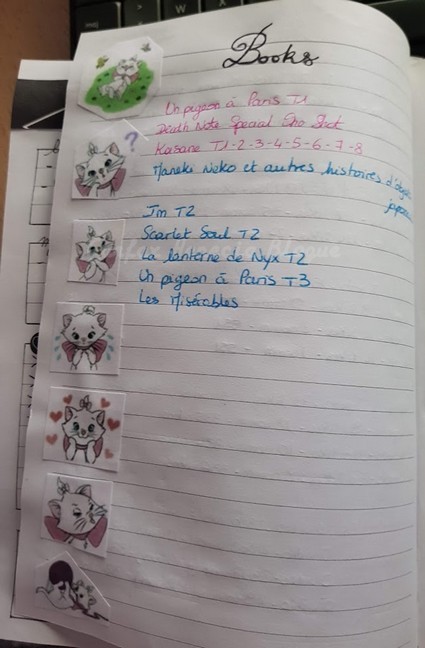 Books
Un pigeon à Paris T1
Death Note Special One Shot
Kasane T1-2-3-4-5-6-7-8
?
Maneki Neko et autres histoires d'objets
japonais
Jm T2
Scarlet Soul T2
La lanterne de Nyx T2
Un pigeon à Paris T3
Les Misérables